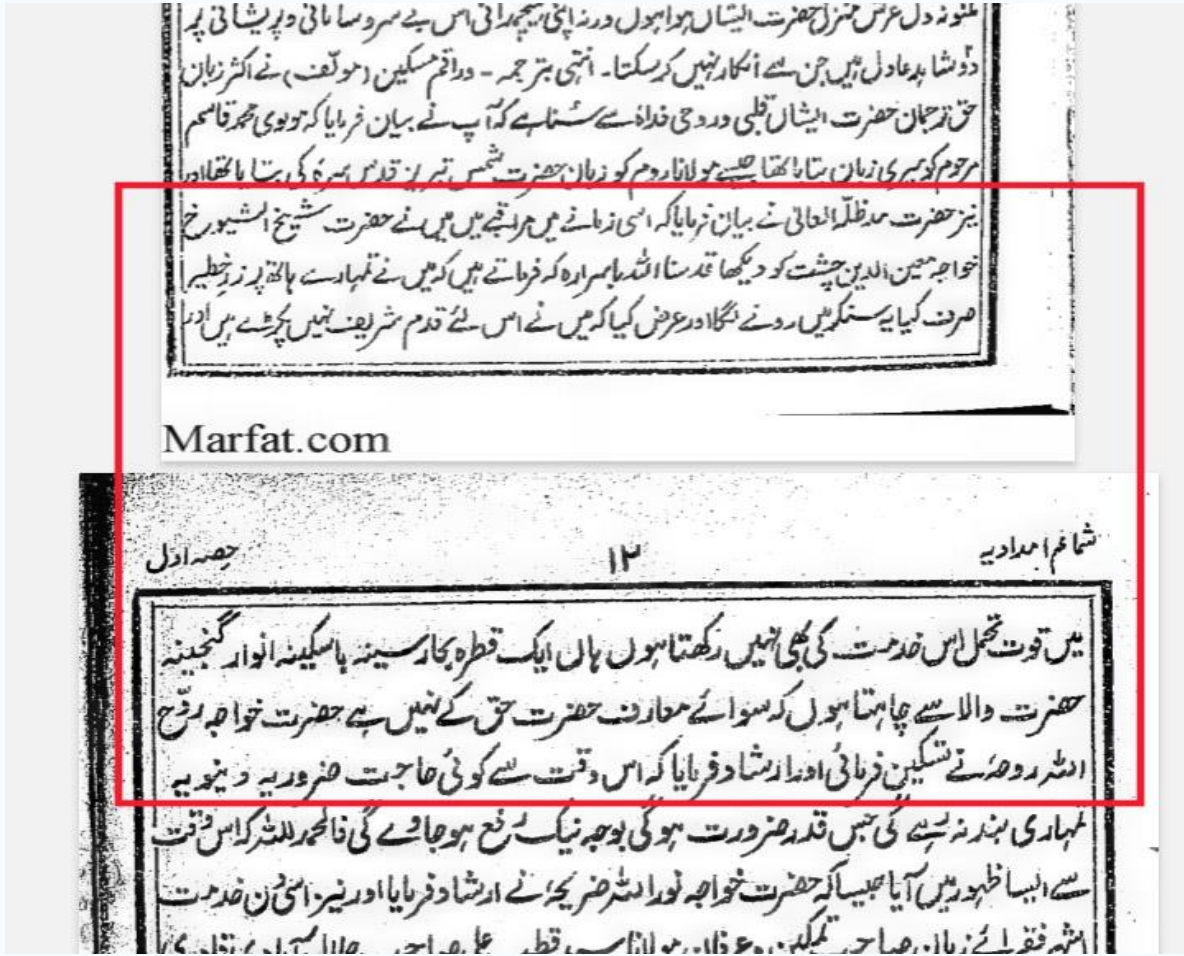 نمونہ دل عرش منزل حضرت ایشاں ہوا ہوں ورنہ اپنی ہیچمدانی اس بے سروسامانی و پریشانی پر
دو شاہد عادل ہیں جن سے انکار نہیں کرسکتا۔ انتہی بترجمہ - وراقم مسکین (مولف) نے اکثر زبان
حق ترجمان حضرت ایشاں قلبی وروحی فداہ سے سنا ہے کہ آپ نے بیان فرمایا کہ مولوی محمد قاسم
مرحوم کو میری زبان بنایا تھا جیسے مولانا روم کو زبان حضرت شمس تبریز قدس سرہ کی بنایا تھا اور
نیز حضرت مدظلہ العالی نے بیان فرمایا کہ اسی زمانے میں مراقبے میں میں نے حضرت شیخ الشیوخ
خواجہ معین الدین چشت کو دیکھا قدسنا اللہ باسرارہ کہ فرماتے ہیں کہ میں نے تمہارے ہاتھ پر زر خطیر
صرف کیا یہ سنکر میں رونے لگا اور عرض کیا کہ میں نے اس لئے قدم شریف نہیں پکڑے ہیں اور
Marfat.com
شمائم امدادیہ ۱۲ حصہ اول
میں قوت تحمل اس خدمت کی بھی نہیں رکھتا ہوں ہاں ایک قطرہ بحار سینہ باسکینہ انوار گنجینہ
حضرت والا سے چاہتا ہوں کہ سوائے معارف حضرت حق کے نہیں ہے حضرت خواجہ روّح
اللہ روحہ نے تسکین فرمائی اور ارشاد فرمایا کہ اس وقت سے کوئی حاجت ضروریہ دینویہ
تمہاری بند نہ رہے گی جس قدر ضرورت ہوگی بوجہ نیک رفع ہوجاوے گی فالحمد للہ کہ اس وقت
سے ایسا ظہور میں آیا جیسا کہ حضرت خواجہ نور اللہ ضریحہ نے ارشاد فرمایا اور نیز اسی خدمت
اشہر فقرائے زمان صاحب تمکین وعرفان مولانا قطب علی صاحب جلال آبادی